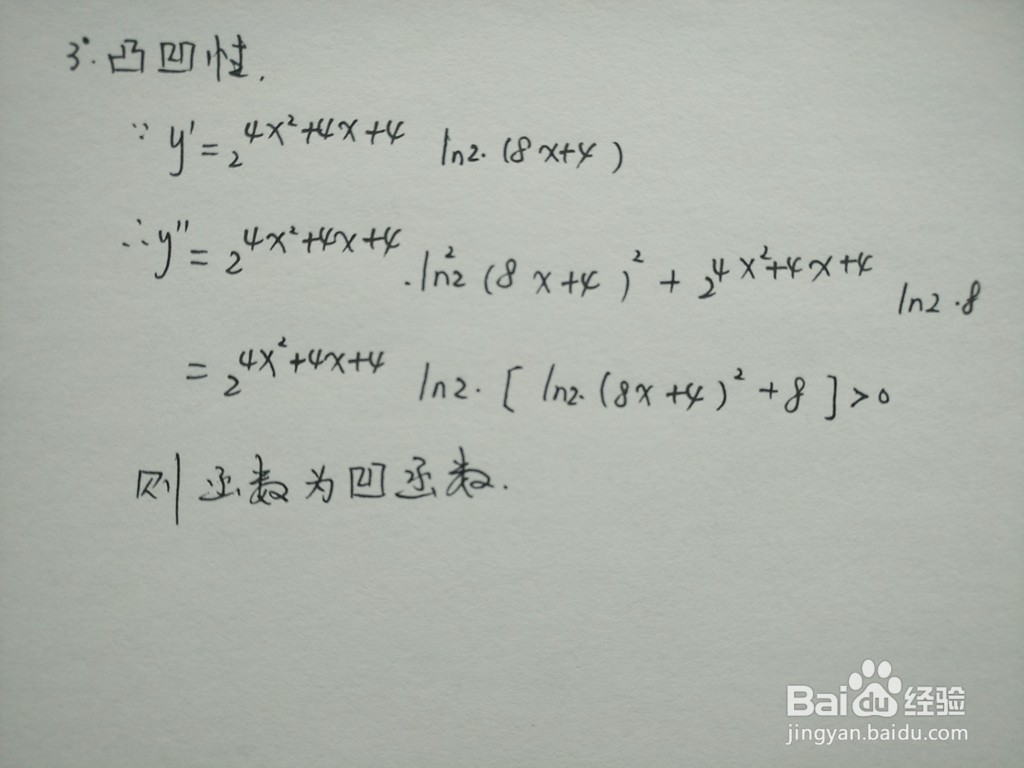 3°. 凸凹性.
∵ y' = 2^{4x²+4x+4} ln2·(8x+4)
∴ y'' = 2^{4x²+4x+4}·ln²2 (8x+4)² + 2^{4x²+4x+4} ln2·8
= 2^{4x²+4x+4} ln2·[ln2·(8x+4)²+8]>0
则函数为凹函数.
Bai du 经验
jingyan.baidu.com